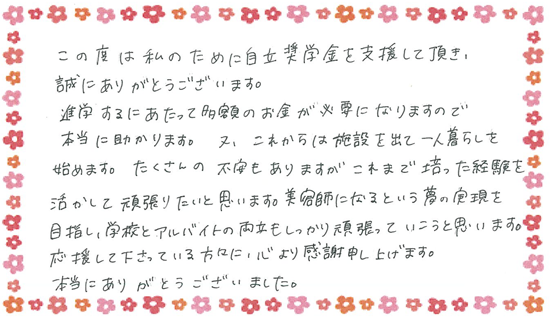 この度は私のために自立奨学金を支援して頂き、
誠にありがとうございます。
進学するにあたって多額のお金が必要になりますので
本当に助かります。又、これからは施設を出て一人暮らしを
始めます。たくさんの不安もありますがこれまで培った経験を
活かして頑張りたいと思います。美容師になるという夢の実現を
目指し、学校とアルバイトの両立もしっかり頑張っていこうと思います。
応援して下さっている方々に、心より感謝申し上げます。
本当にありがとうございました。